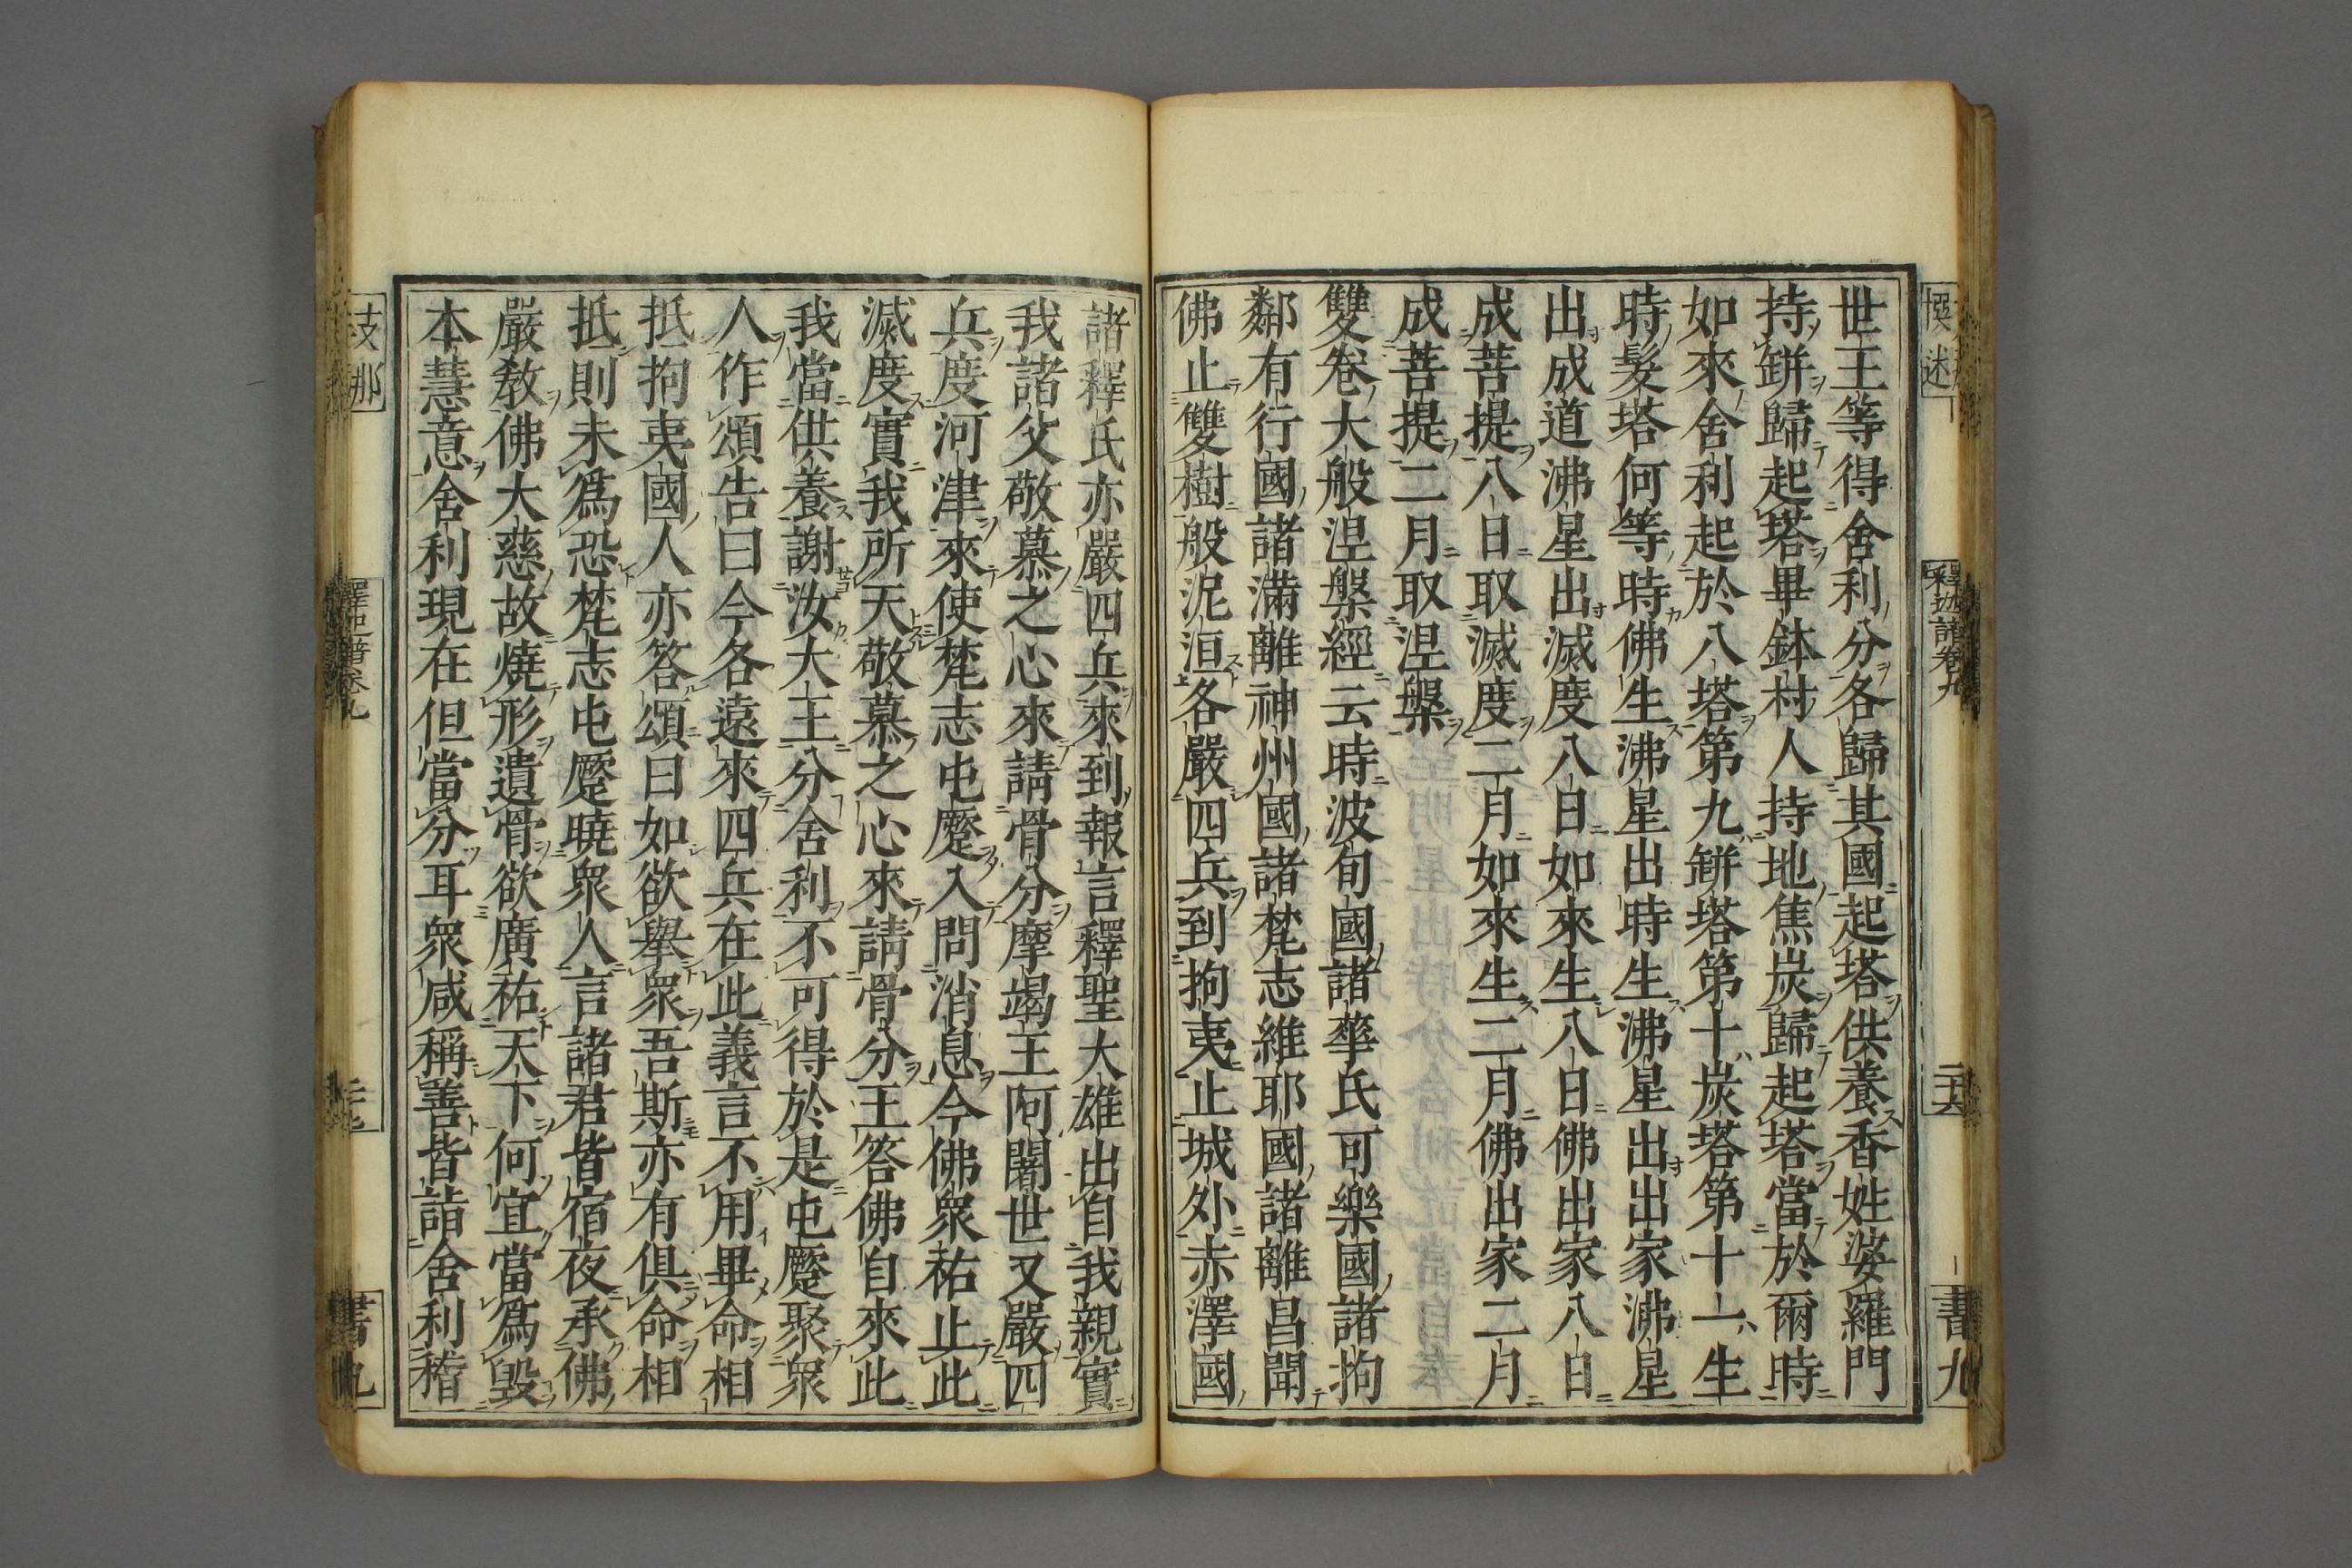 世王等得舍利分各歸其國起塔供養香姓婆羅門
持缾歸起塔畢鉢村人持地焦炭歸起塔當於爾時
如來舍利起於八塔第九缾塔第十炭塔第十一生
時髮塔何等時佛生沸星出時生沸星出出家沸星
出成道沸星出滅度八日如來生八日佛出家八日
成菩提八日取滅度二月如來生二月佛出家二月
成菩提二月取涅槃
雙卷大般涅槃經云時波旬國諸華氏可樂國諸拘
鄰有行國諸滿離神州國諸梵志維耶國諸離昌聞
佛止雙樹般泥洹各嚴四兵到拘夷止城外赤澤國
諸釋氏亦嚴四兵來到報言釋聖大雄出自我親實
我諸父敬慕之心來請骨分摩竭王阿闍世又嚴四
兵度河津來使梵志屯蹷入問消息今佛眾祐止此
滅度實我所天敬慕之心來請骨分王答佛自來此
我當供養謝汝大王分舍利不可得於是屯蹷聚眾
人作頌告曰今各遠來四兵在此義言不用畢命相
抵拘夷國人亦答頌曰如欲舉眾吾斯亦有俱命相
抵則未為恐梵志屯蹷曉眾人言諸君皆宿夜承佛
嚴教佛大慈故燒形遺骨欲廣祐天下何宜當為毀
本慧意舍利現在但當分耳眾咸稱善皆詣舍利稽
撰述
釋迦譜卷九
二十六
書九
支那
釋迦譜卷九
二十七
書九